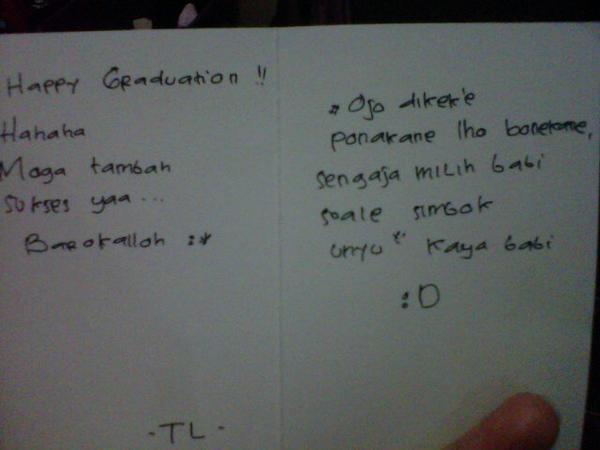 Happy Graduation !!
Hahaha
Moga tambah
sukses yaa...
Barokalloh :*
-TL-
* Ojo dikek'e
ponakane lho bonekane,
sengaja milih babi
soale simbok
unyu" kaya babi
:D